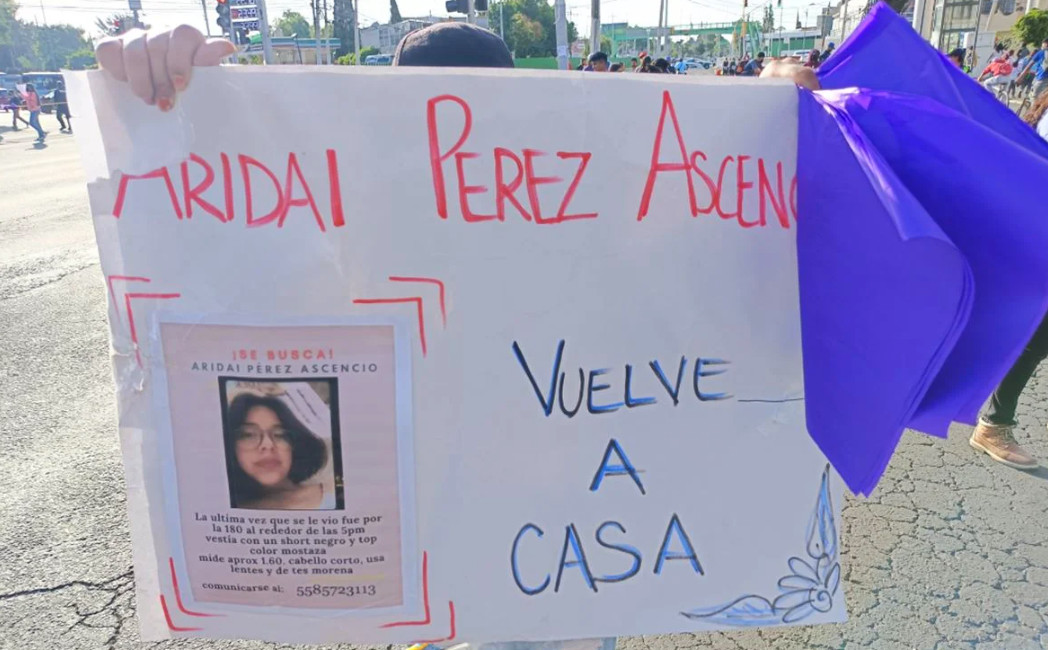 ARIDAI PEREZ ASCENC
VUELVE
A
CASA
¡SE BUSCA!
ARIDAI PÉREZ ASCENCIO
La ultima vez que se le vio fue por
la 180 al rededor de las 5pm
vestia con un short negro y top
color mostaza
mide aprox 1.60, cabello corto, usa
lentes y de tes morena
comunicarse al: 5585723113